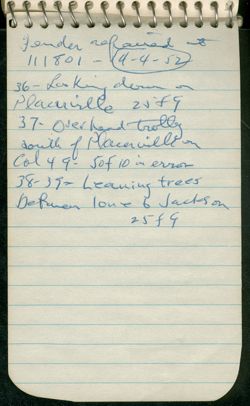 Fender repaired at
111801 - (4-4-52)
36- Looking down on
Placerville 25f9
37- Overhead trolly
south of Placerville on
Col 49- 50f10 is error
38-39- Leaning trees
Between Ione & Jackson
25f9